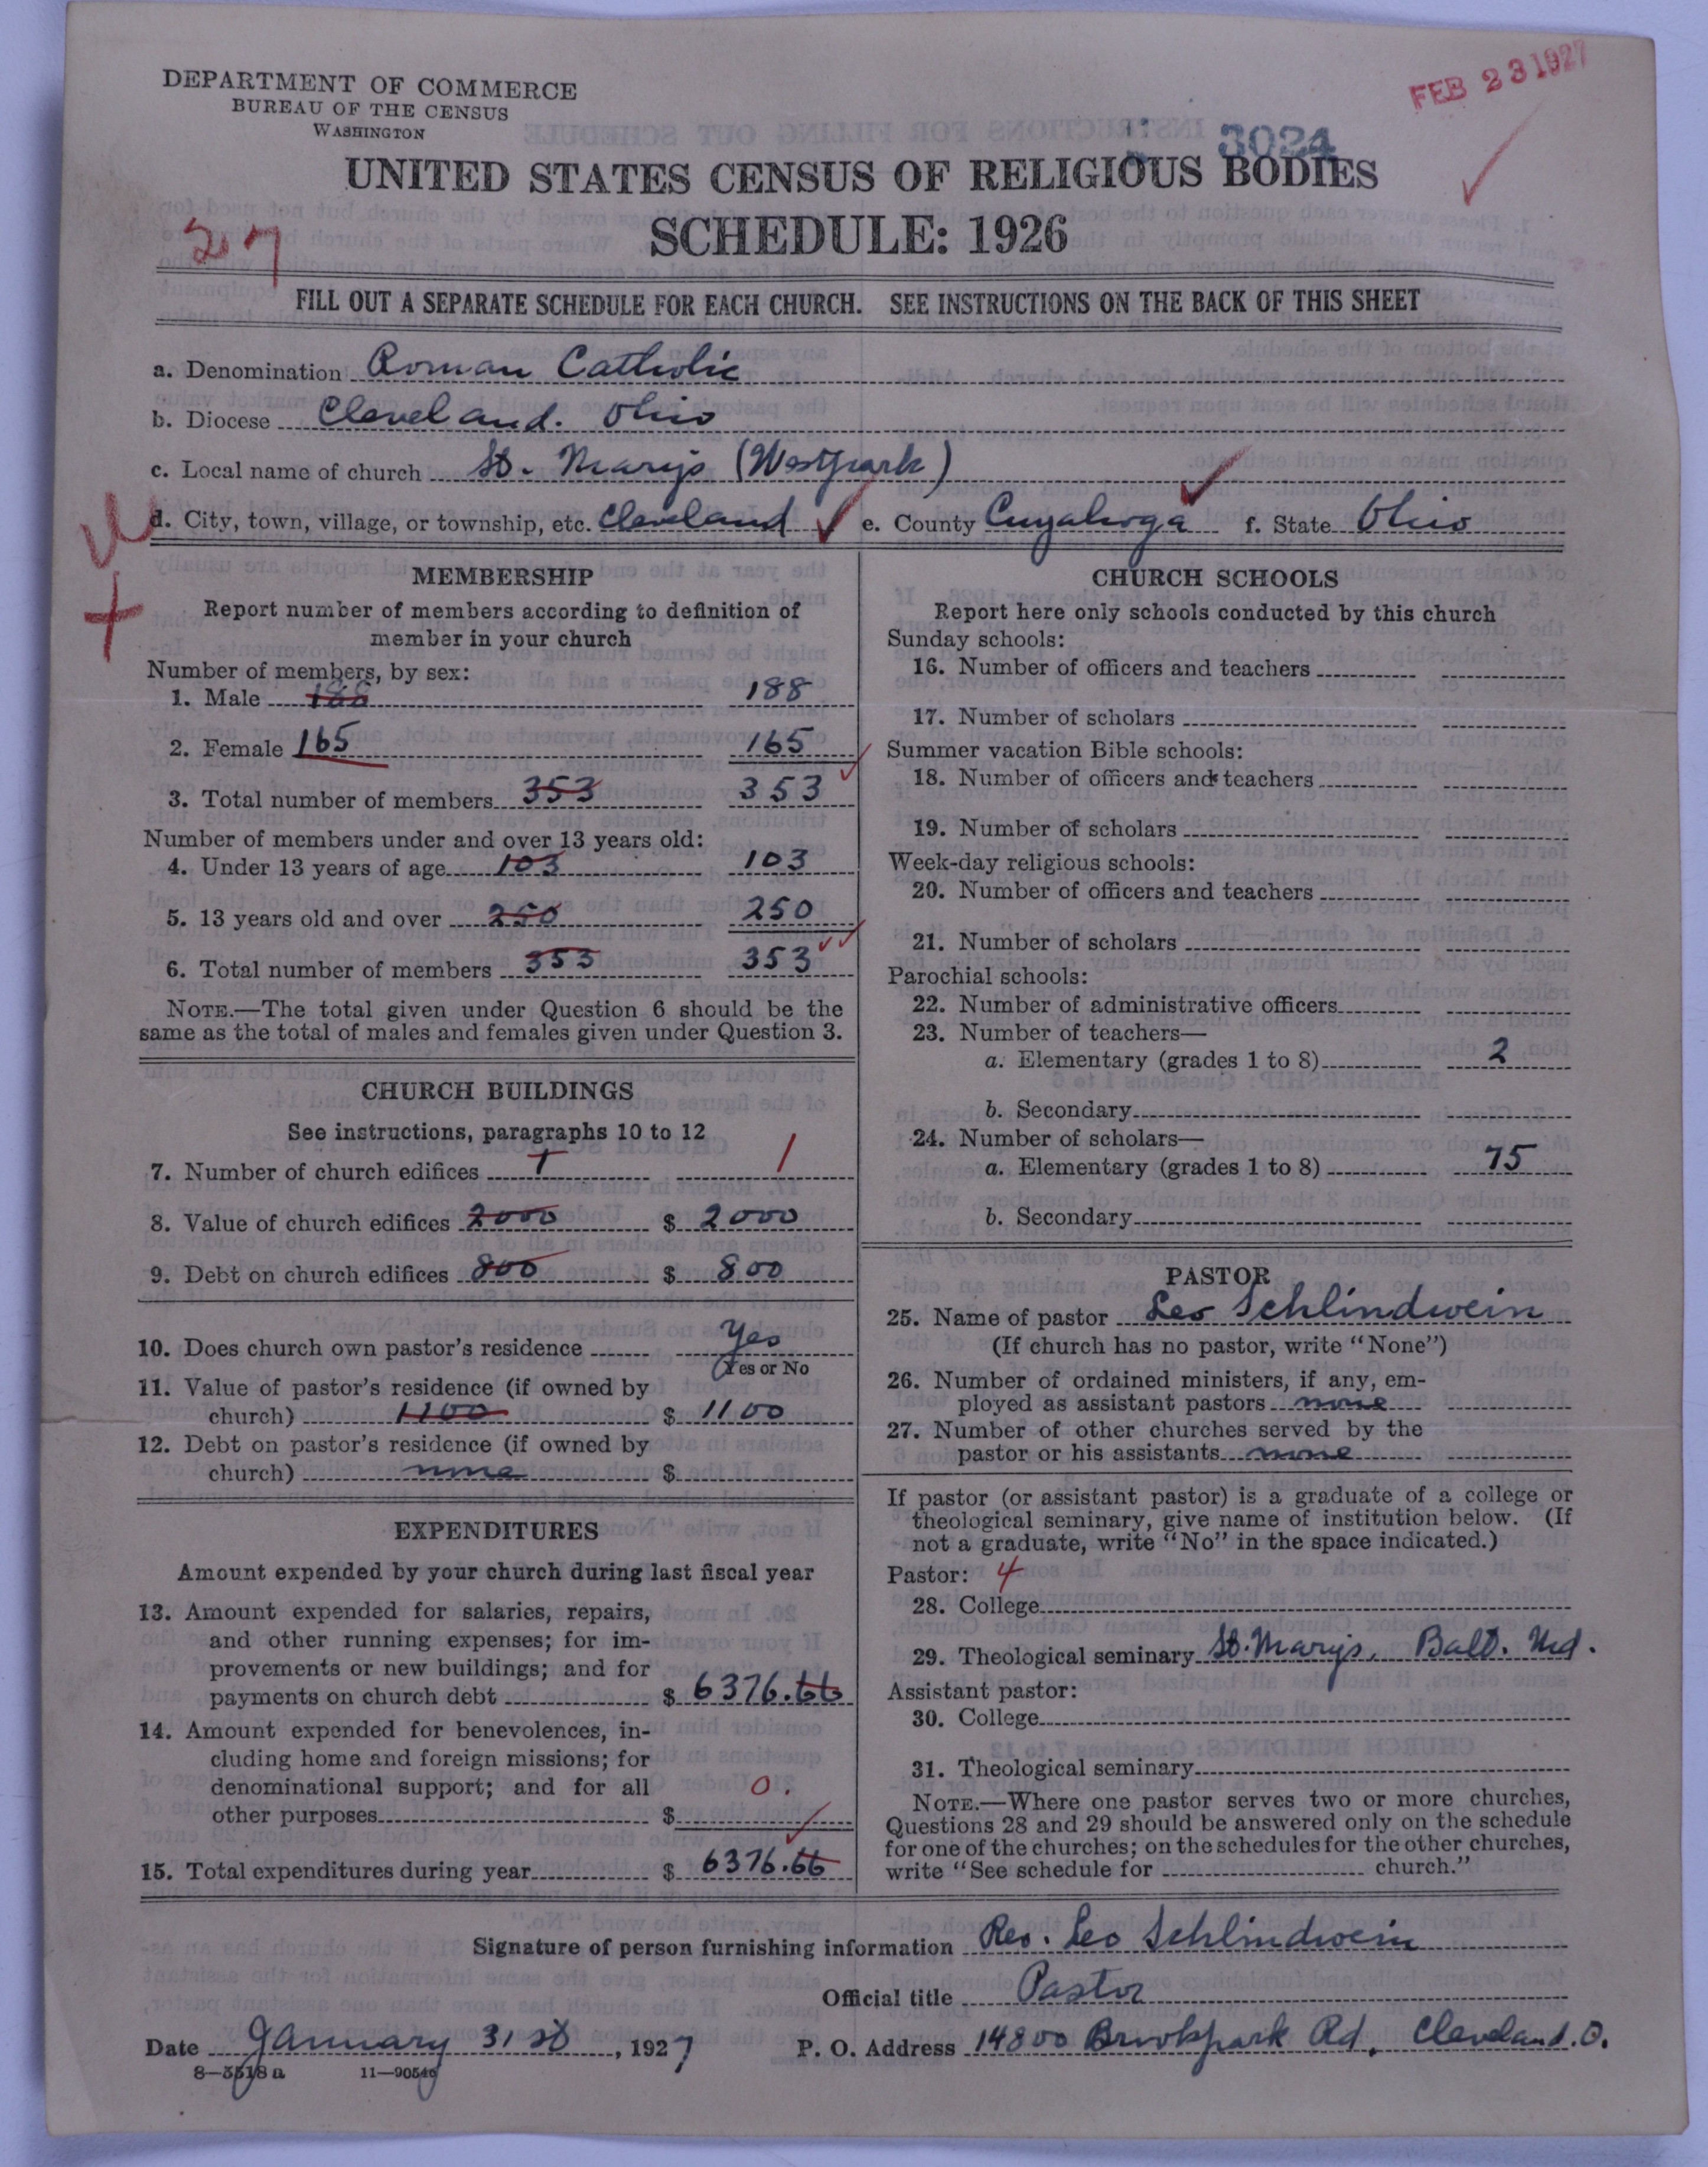 DEPARTMENT OF COMMERCE
BUREAU OF THE CENSUS
WASHINGTON
FEB 23 1927
3024
UNITED STATES CENSUS OF RELIGIOUS BODIES
SCHEDULE: 1926
FILL OUT A SEPARATE SCHEDULE FOR EACH CHURCH. SEE INSTRUCTIONS ON THE BACK OF THIS SHEET
a. Denomination Roman Catholic
b. Diocese Cleveland. Ohio
c. Local name of church St. Marys (Westpark)
d. City, town, village, or township, etc. Cleveland e. County Cuyahoga f. State Ohio
MEMBERSHIP
Report number of members according to definition of
member in your church
Number of members, by sex:
1. Male 188 188
2. Female 165 165
3. Total number of members 353 353
Number of members under and over 13 years old:
4. Under 13 years of age 103 103
5. 13 years old and over 250 250
6. Total number of members 353 353
NOTE.—The total given under Question 6 should be the
same as the total of males and females given under Question 3.
CHURCH BUILDINGS
See instructions, paragraphs 10 to 12
7. Number of church edifices 1 1
8. Value of church edifices 2000 $ 2000
9. Debt on church edifices 800 $ 800
10. Does church own pastor's residence Yes
Yes or No
11. Value of pastor's residence (if owned by
church) 1100 $ 1100
12. Debt on pastor's residence (if owned by
church) none $
EXPENDITURES
Amount expended by your church during last fiscal year
13. Amount expended for salaries, repairs,
and other running expenses; for im-
provements or new buildings; and for
payments on church debt $ 6376.66
14. Amount expended for benevolences, in-
cluding home and foreign missions; for
denominational support; and for all
other purposes $ 0.
15. Total expenditures during year $ 6376.66
CHURCH SCHOOLS
Report here only schools conducted by this church
Sunday schools:
16. Number of officers and teachers
17. Number of scholars
Summer vacation Bible schools:
18. Number of officers and teachers
19. Number of scholars
Week-day religious schools:
20. Number of officers and teachers
21. Number of scholars
Parochial schools:
22. Number of administrative officers
23. Number of teachers—
a. Elementary (grades 1 to 8) 2
b. Secondary
24. Number of scholars—
a. Elementary (grades 1 to 8) 75
b. Secondary
PASTOR
25. Name of pastor Leo Schlindwein
(If church has no pastor, write "None")
26. Number of ordained ministers, if any, em-
ployed as assistant pastors none
27. Number of other churches served by the
pastor or his assistants none
If pastor (or assistant pastor) is a graduate of a college or
theological seminary, give name of institution below. (If
not a graduate, write "No" in the space indicated.)
Pastor: 4
28. College
29. Theological seminary St. Marys, Balt. Md.
Assistant pastor:
30. College
31. Theological seminary
NOTE.—Where one pastor serves two or more churches,
Questions 28 and 29 should be answered only on the schedule
for one of the churches; on the schedules for the other churches,
write "See schedule for church."
Signature of person furnishing information Rev. Leo Schlindwein
Official title Pastor
Date January 31 st, 1927 P. O. Address 14800 Brookpark Rd, Cleveland. O.
8—3518 a 11—90540